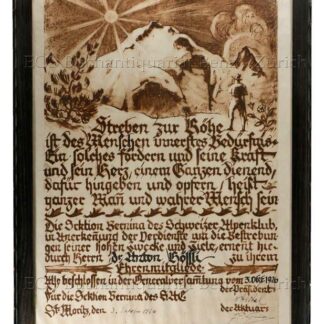 Streben zur Höhe
ist des Menschen innerstes Bedürfnis.
Ein solches fördern und seine Kraft
und sein Herz, einem Ganzen dienend,
dafür hingeben und opfern, heißt
ganzer Mann und wahrer Mensch sein.
Die Sektion Bernina des Schweizer Alpenklub,
in Anerkennung der Verdienste um die Bestrebun-
gen seiner hohen Zwecke und Ziele, ernennt hie-
durch Herrn Dr Anton Gößli zu ihrem
Ehrenmitgliede
Also beschlossen in der Generalversammlung vom 3. Okt. 1926
Für die Sektion Bernina des S.A.C. der Präsident
St. Moritz, den der Aktuar